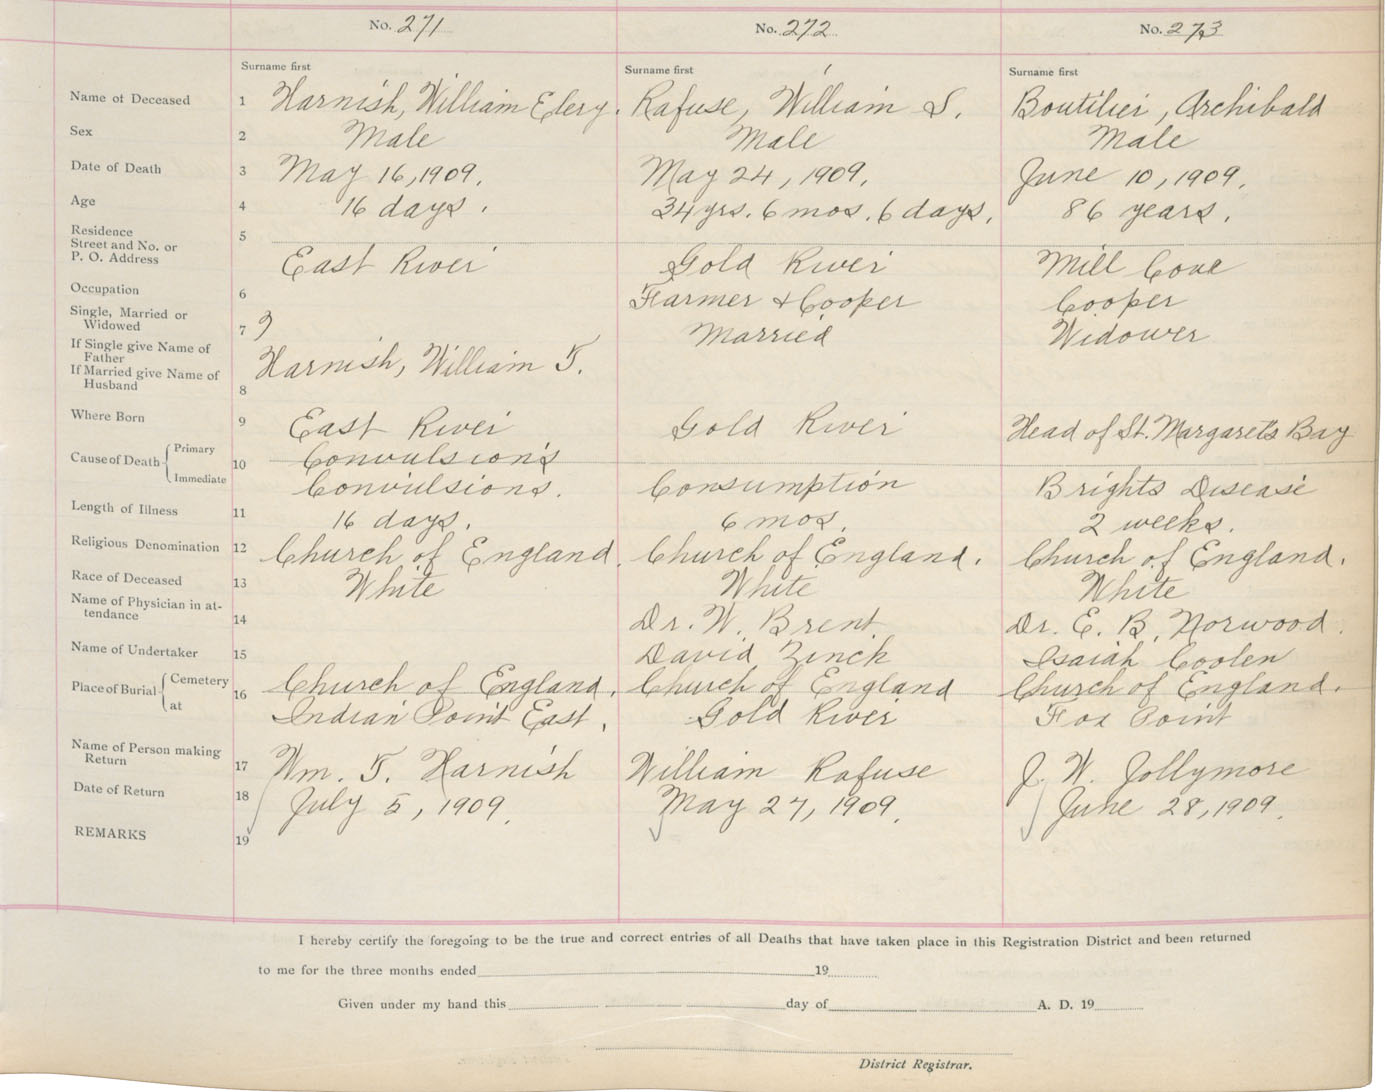 No. 271 No. 272 No. 273
Surname first Surname first Surname first
Name of Deceased 1 Harnish, William Elery. Rafuse, William S. Boutilier, Archibald
Sex 2 Male Male Male
Date of Death 3 May 16, 1909. May 24, 1909. June 10, 1909.
Age 4 16 days. 34 yrs. 6 mos. 6 days. 86 years.
Residence
Street and No. or
P. O. Address 5 East River Gold River Mill Cove
Occupation 6 Farmer & Cooper Cooper
Single, Married or
Widowed 7 Married Widower
If Single give Name of
Father Harnish, William T.
If Married give Name of
Husband 8
Where Born 9 East River Gold River Head of St. Margarets Bay
Cause of Death Primary 10 Convulsions
Immediate Convulsions. Consumption Brights Disease
Length of Illness 11 16 days. 6 mos. 2 weeks.
Religious Denomination 12 Church of England. Church of England. Church of England.
Race of Deceased 13 White White White
Name of Physician in at-
tendance 14 Dr. W. Brent Dr. E. B. Norwood.
Name of Undertaker 15 David Zinck Isaiah Coolen
Place of Burial Cemetery 16 Church of England. Church of England Church of England.
at Indian Point East. Gold River Fox Point
Name of Person making
Return 17 Wm. T. Harnish William Rafuse J. W. Jollymore
Date of Return 18 July 5, 1909. May 27, 1909. June 28, 1909.
REMARKS 19
I hereby certify the foregoing to be the true and correct entries of all Deaths that have taken place in this Registration District and been returned
to me for the three months ended 19
Given under my hand this day of A. D. 19
District Registrar.